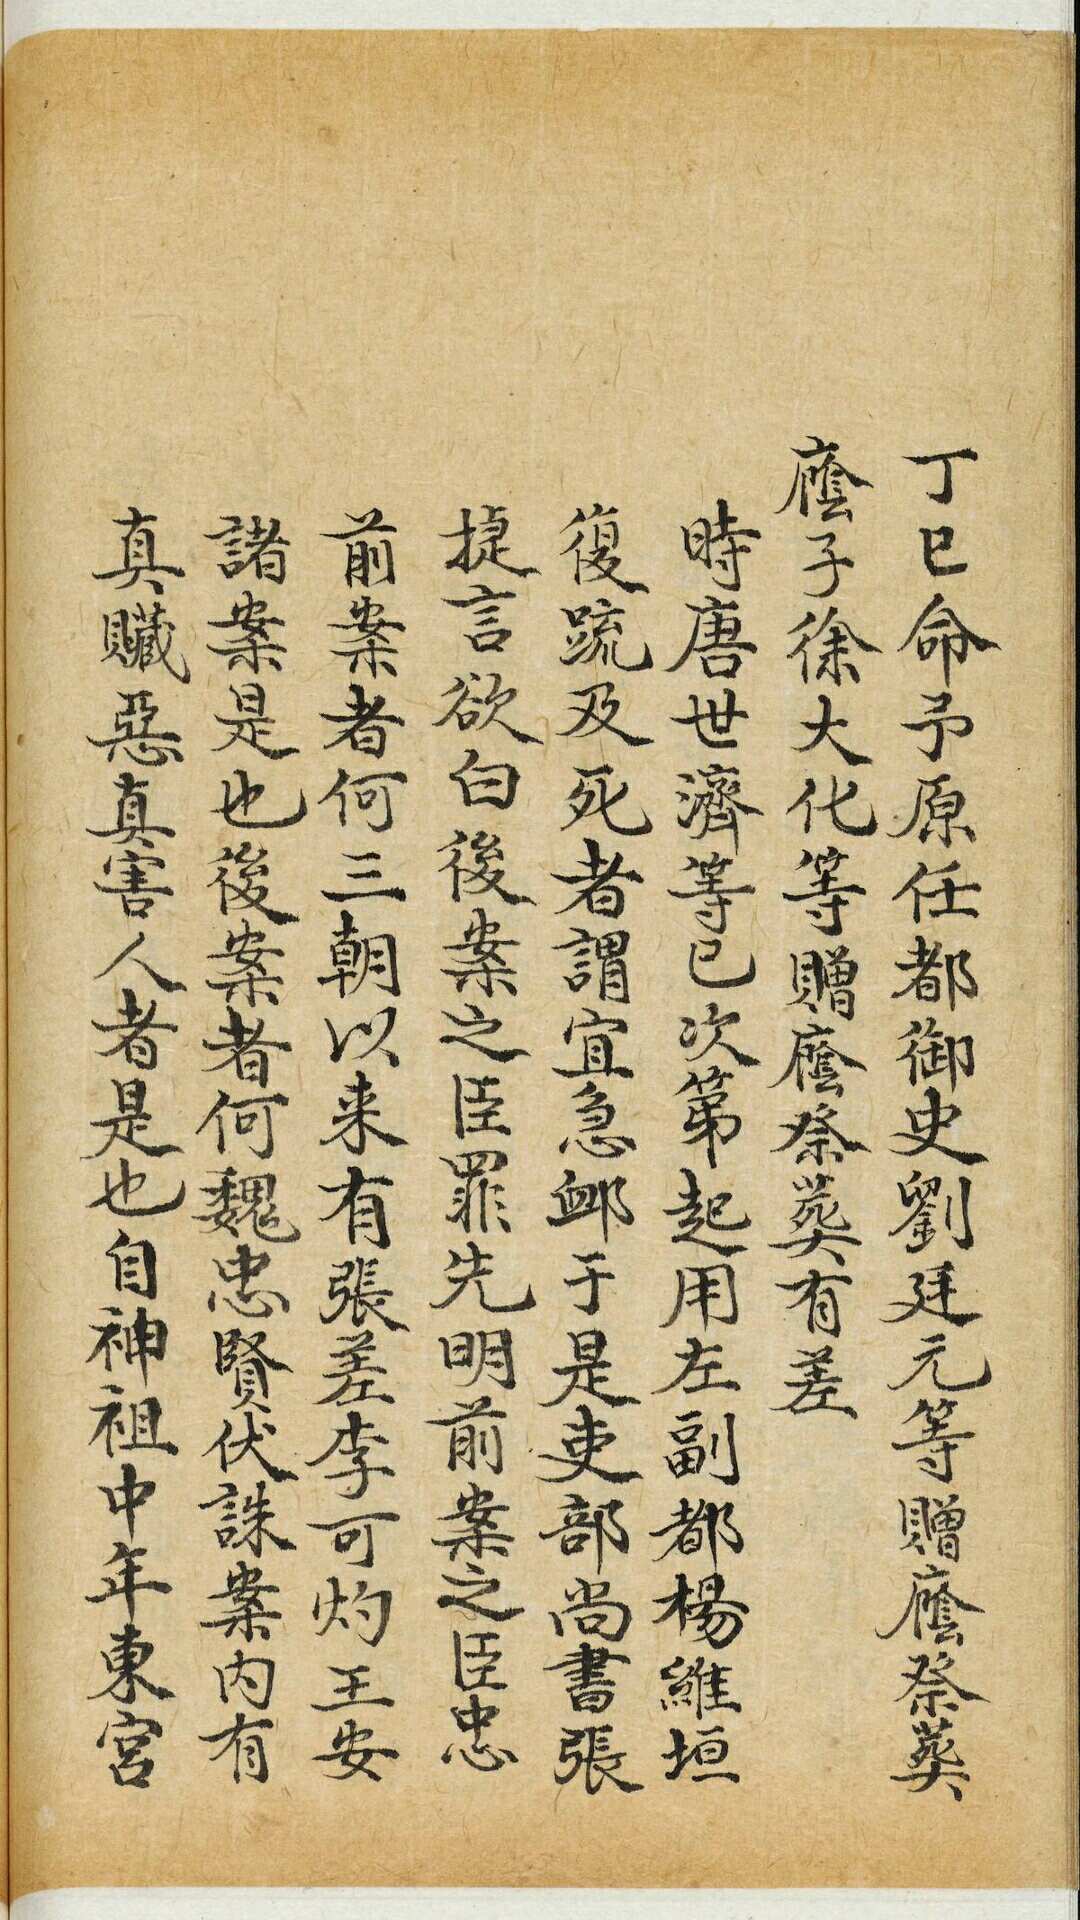 丁巳命予原任都御史劉廷元等贈廕祭葬
廕子徐大化等贈廕祭葬有差
時唐世濟等已次第起用左副都楊維垣
復疏及死者謂宜急卹于是吏部尚書張
捷言欲白後案之臣罪先明前案之臣忠
前案者何三朝以来有張差李可灼王安
諸案是也後案者何魏忠賢伏誅案内有
真贓惡真害人者是也自神祖中年東宮